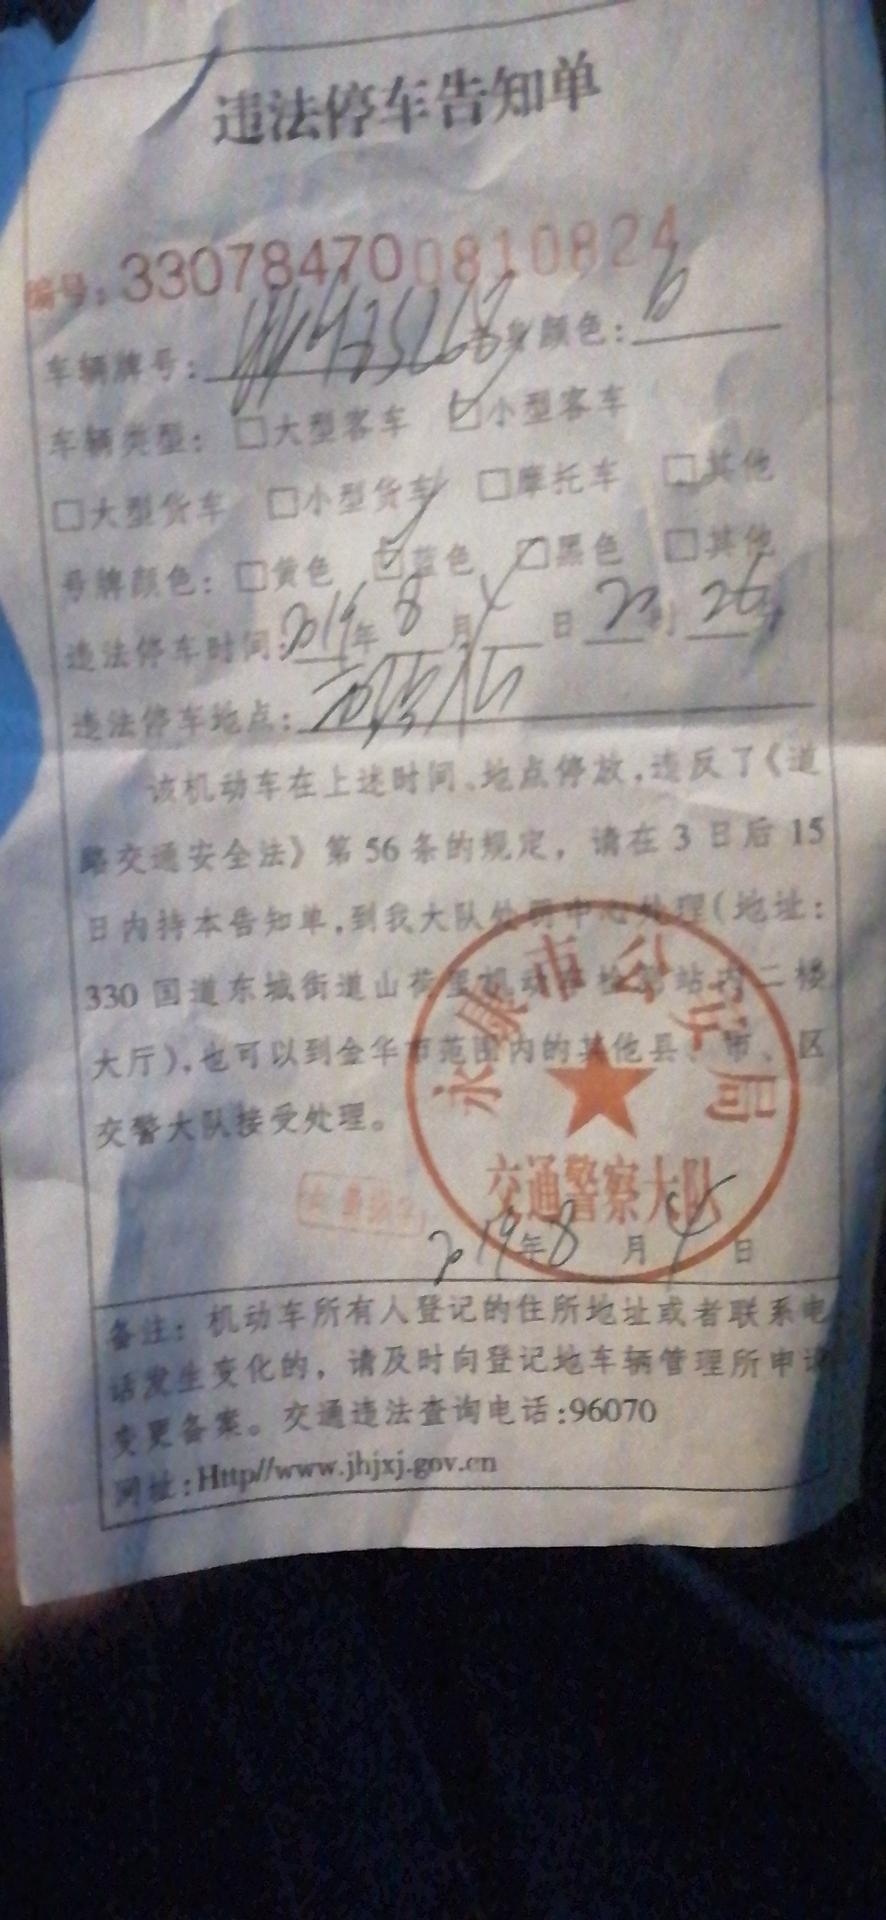 违法停车告知单
编号:330784700810824
车辆牌号: 车身颜色:
车辆类型: □大型客车 ☑小型客车
□大型货车 □小型货车 □摩托车 □其他
号牌颜色: □黄色 ☑蓝色 □黑色 □其他
违法停车时间: 2019年 8 月 4 日 20 时 26
违法停车地点:
该机动车在上述时间、地点停放,违反了《道
路交通安全法》第 56 条的规定, 请在 3 日后 15
日内持本告知单,到我大队处罚中心处理(地址:
330 国道东城街道山荷里机动车检测站内二楼
大厅),也可以到金华市范围内的其他县、市、区
交警大队接受处理。
永康市公安局
交通警察大队
2019年 8 月 4 日
备注: 机动车所有人登记的住所地址或者联系电
话发生变化的, 请及时向登记地车辆管理所申请
变更备案。交通违法查询电话:96070
网址:Http//www.jhjxj.gov.cn